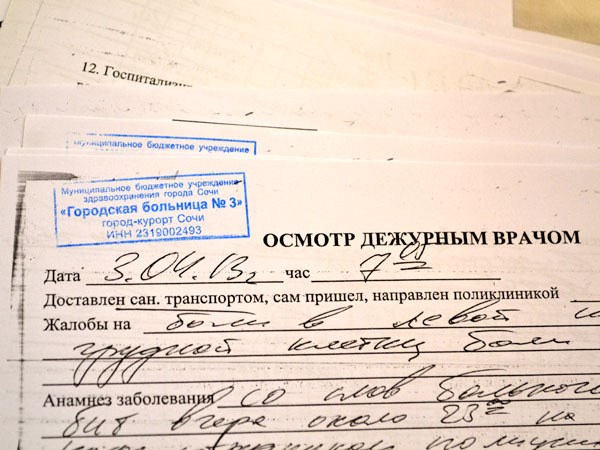 12. Госпитализи
Муниципальное бюджетное учреждение
Муниципальное бюджетное учреждение
здравоохранения города Сочи
«Городская больница № 3»
город-курорт Сочи
ИНН 2319002493
ОСМОТР ДЕЖУРНЫМ ВРАЧОМ
Дата 3.04.13г час 7 05
Доставлен сан. транспортом, сам пришел, направлен поликлиникой
Жалобы на боли в левой
грудной клетки боли
Анамнез заболевания со слов больного
бит вчера около 23 00 на